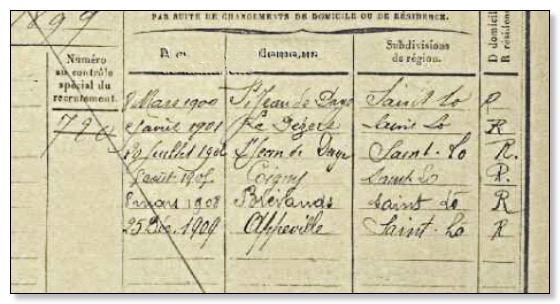 1899
PAR SUITE DE CHANGEMENTS DE DOMICILE OU DE RÉSIDENCE.
Numéro au contrôle spécial du recrutement.
Dates. Communes. Subdivisions de région. D domicile R résidence
8 Mars 1900 St Jean de Daye Saint Lo
avril 1901 Le Dézert Saint Lo R
Juillet St Jean de Daye Saint-Lo R.
août Coigny Saint Lo R.
mars 1908 Brévands Saint Lo R
25 Déc. 1909 Appeville Saint-Lo R